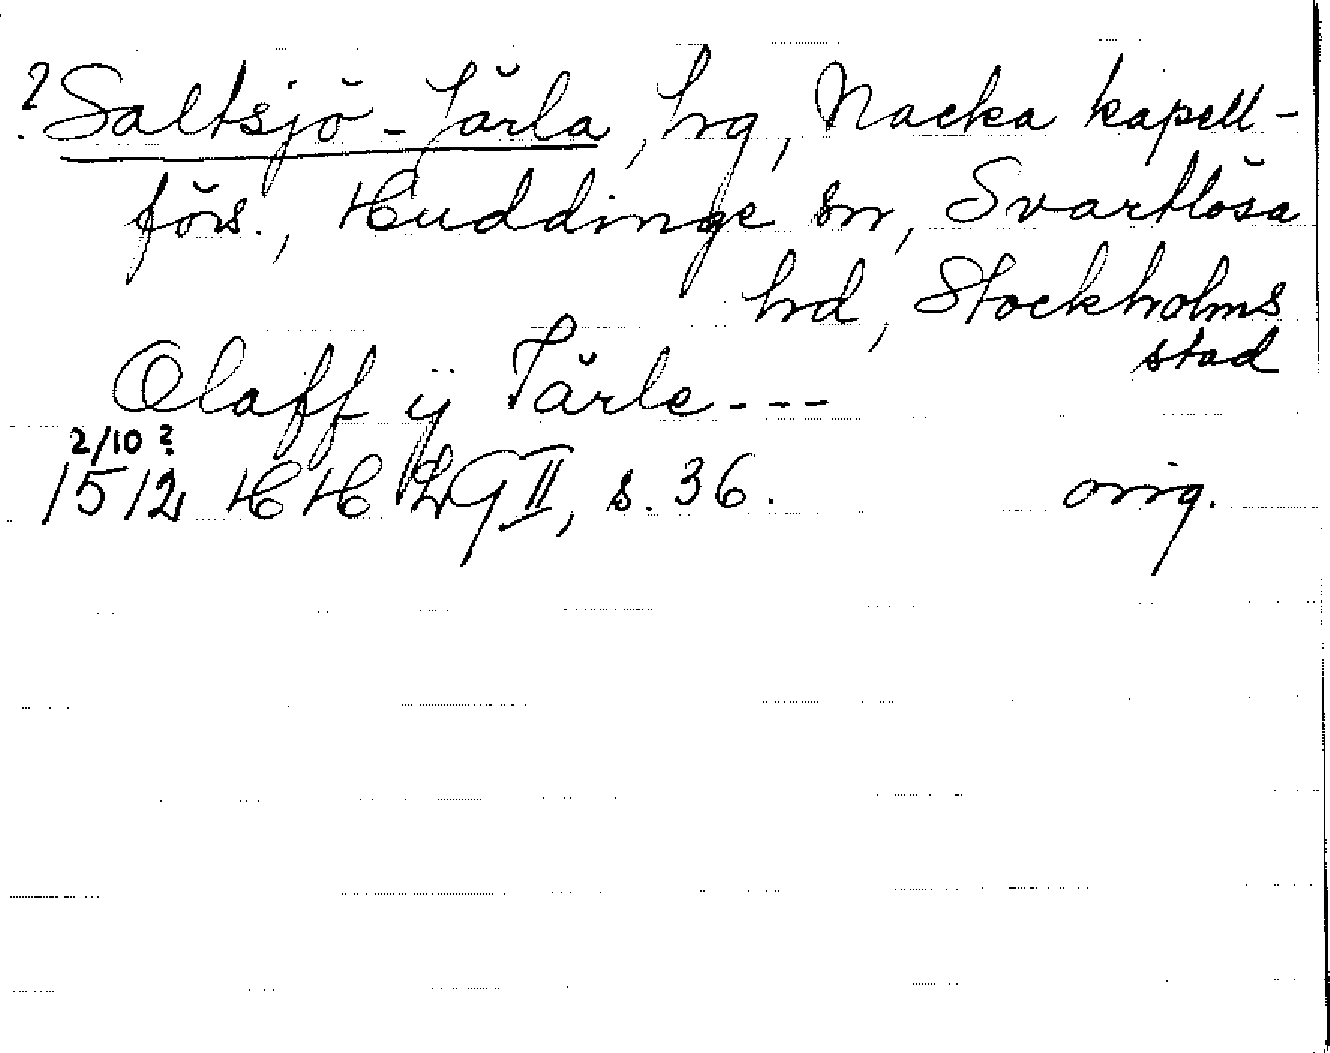 ? Saltsjö-Järla, hg, Nacka kapell-
förs., Huddinge sn, Svartlösa
hd, Stockholms
stad
Olaff ÿ Järle---
2/10 ?
1512 HH LG II, s. 36. orig.